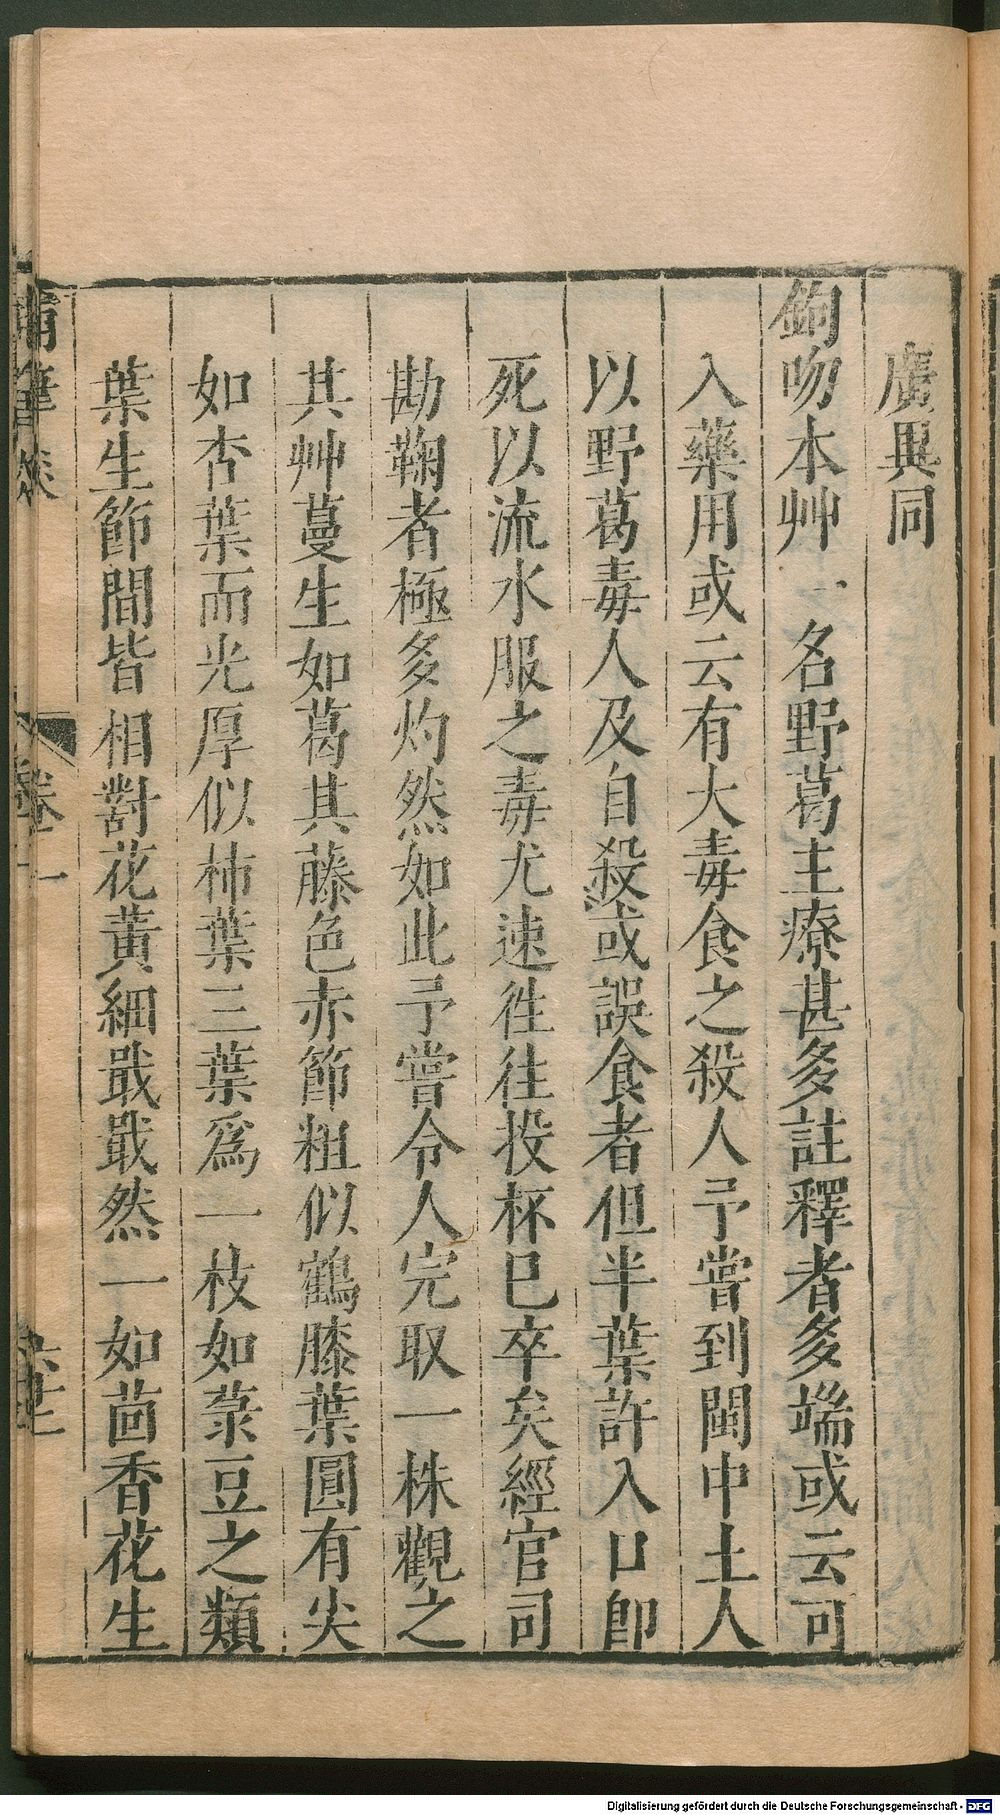 廣異同
鉤吻本艸一名野葛主療甚多註釋者多端或云可
入藥用或云有大毒食之殺人予嘗到閩中土人
以野葛毒人及自殺或誤食者但半葉許入口即
死以流水服之毒尤速徃往投杯巳卒矣經官司
勘鞠者極多灼然如此予嘗令人完取一株觀之
其艸蔓生如葛其藤色赤節粗似鶴膝葉圓有尖
如杏葉而光厚似柿葉三葉爲一枝如菉豆之類
葉生節間皆相對花黃細戢戢然一如茴香花生
卷一
Digitalisierung gefördert durch die Deutsche Forschungsgemeinschaft - DFG